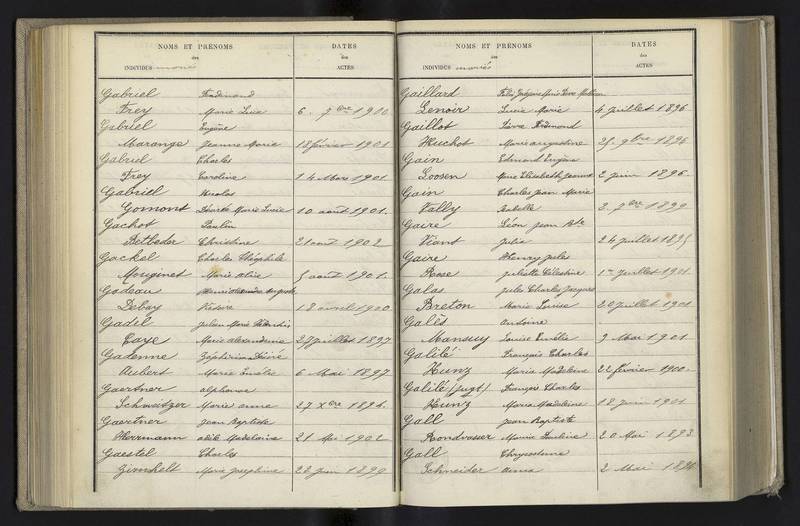 NOMS ET PRÉNOMS
des
INDIVIDUS mariés
DATES
des
ACTES
Gabriel Ferdinand
Frey Marie Lucie 6. 7bre 1900
Gabriel Eugène
Marange Jeanne Marie 18 février 1901
Gabriel Charles
Frey Caroline 14 Mars 1901.
Gabriel Nicolas
Gomont Marie Lucie 10 août 1901.
Gachot Paulin
Betleder Christine 21 août 1902
Gackel Charles Théophile
Mouginet Marie alice 5 août 1901.
Gadeau Henri Auguste
Debay Victoire 18 avril 1900.
Gadel Julien Marie
Caye Marie alexandrine 27 Juillet 1897
Gadenne Désiré
Aubert Marie Emélie 6 Mai 1897.
Gaertner alphonse
Schweitzer Marie anne 27 Xbre 1894.
Gaertner Jean Baptiste
Herrmann Madeleine 21 Mai 1902
Gaestel Charles
Zimhelt Marie Joséphine 22 Juin 1899
NOMS ET PRÉNOMS
des
INDIVIDUS mariés
DATES
des
ACTES
Gaillard Félix Marie
Lenoir Lucie Marie 4 Juillet 1896
Gaillot Pierre Ferdinand
Huchot Marie augustine 25. 9bre 1896
Gain Edmond Eugène
Loosen Marie Elisabeth Jeanne 2 Juin 1896.
Gain Charles Jean Marie
Vally 2. 7bre 1899
Gaire Léon Jean Bte
Viant Julie 24 Juillet 1895
Gaire Henry Jules
Rose Juliette Célestine 1er Juillet 1901.
Galas Jules Charles Jacques
Breton Marie Louise 20 Juillet 1901
Galès Antoine
Mansuy Louise Emélie 9 Mai 1901
Galilé François Charles
Kunz Maria Madeleine 22 février 1900.
Galilé (jugt) François Charles
Kunz Maria Madeleine 12 Juin 1901
Gall Jean Baptiste
Rondvasser Marie 20 Mai 1893
Gall Chrysostome
Schneider Anna 2 Mai 1896